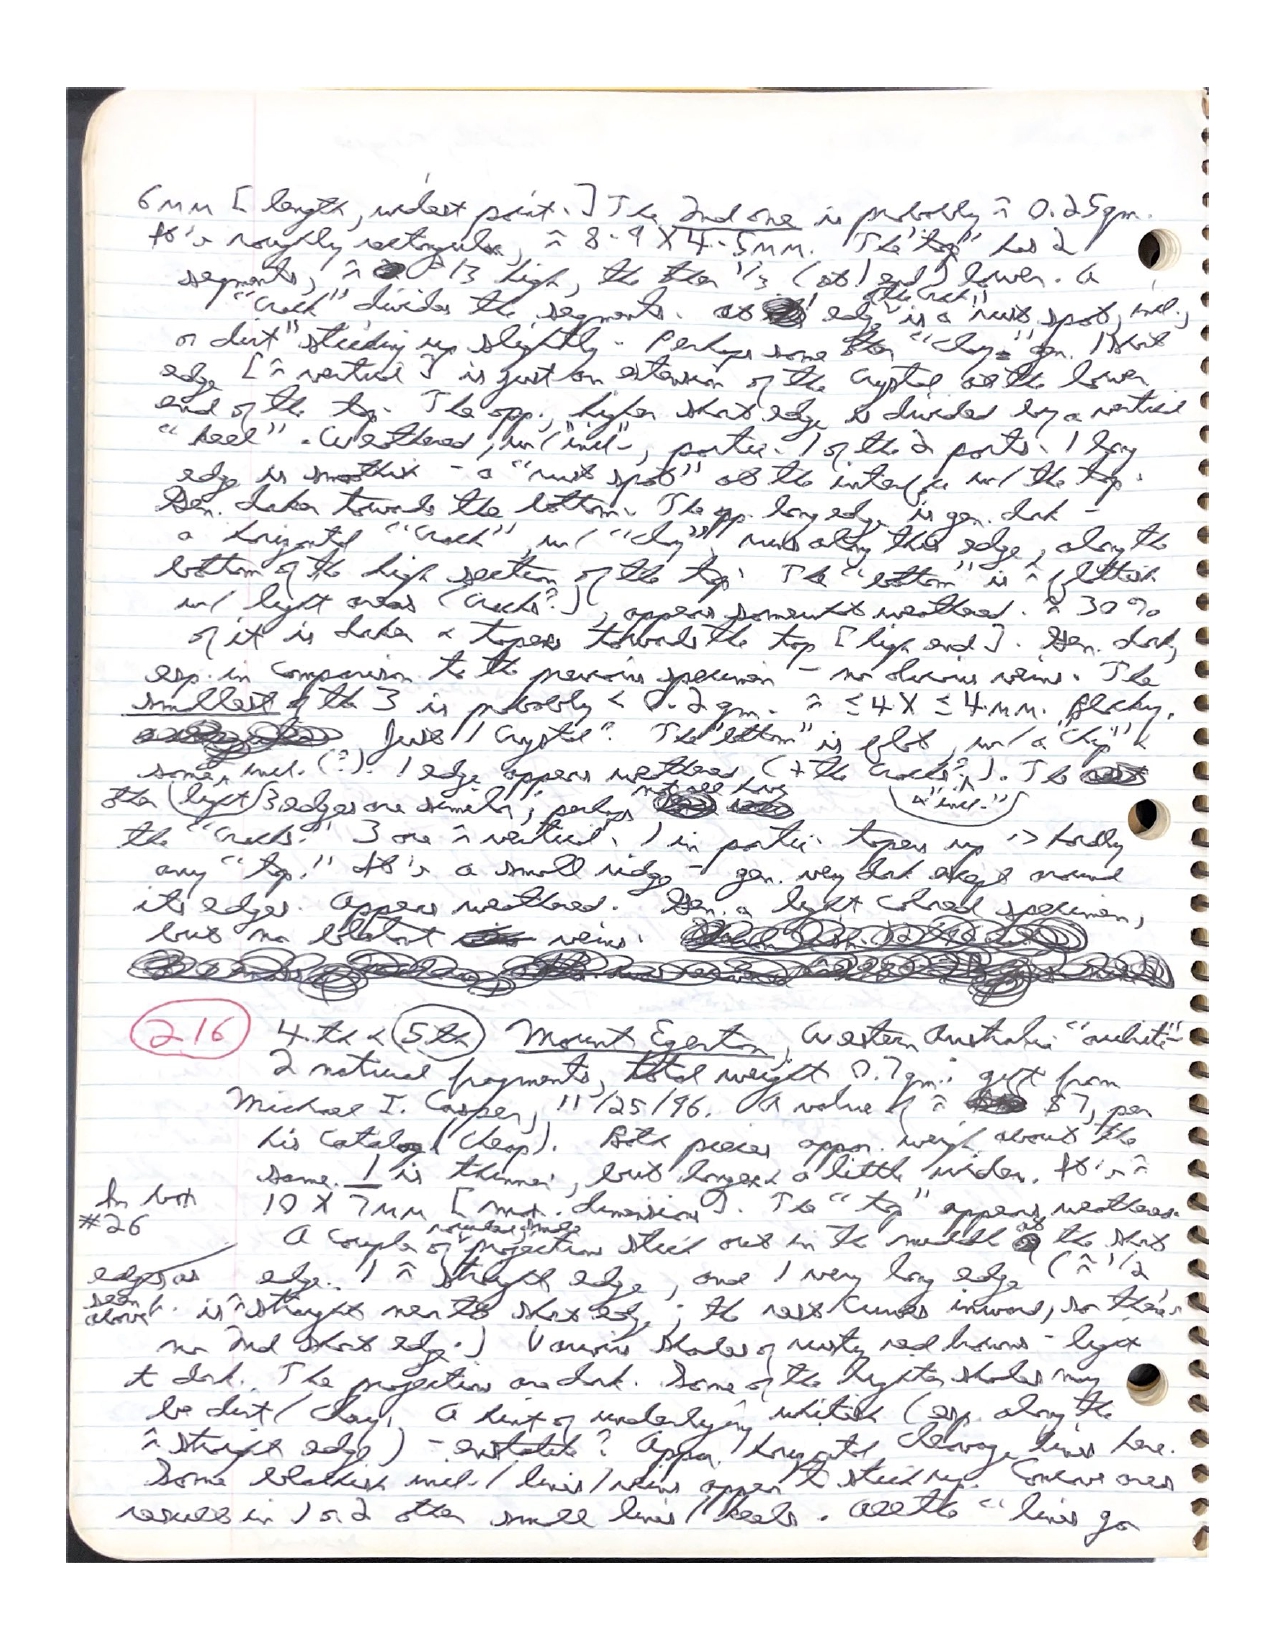 6 mm [length, widest point.] The 2nd one is probably ≈ 0.25 gm.
It's roughly rectangular, ≈ 8-9 X 4-5 mm. The "top" has 2
segments, ≈ 2/3 high, the other 1/3 (at 1 end) lower. A
"crack" divides the segments. At 1 edge of "the crack" is a "rust spot, incl.,
or dirt" sticking up slightly - Perhaps some other "clay" gen. 1 short
edge [≈ vertical] is just an extension of the crystal at the lower
end of the top. The opp., higher short edge is divided by a vertical
"heel". Weathered, w/ "incl.", partic. 1 of the 2 parts. 1 long
edge is smoothish - a "rust spot" at the interface w/ the top.
Gen. darker towards the bottom. The opp. long edge is gen. dark -
a horizontal "crack", w/ "clay", runs along this edge, along the
bottom of the high section of the top. The "bottom" is ≈ flattish
w/ light areas (cracks?), appears somewhat weathered. ≈ 30%
of it is darker & tapers towards the top [high end]. Gen. dark,
esp. in comparison to the previous specimen - no obvious veins. The
smallest of the 3 is probably < 0.2 gm. ≈ ≤4 X ≤ 4 mm. Blocky.
Just 1 crystal? The "bottom" is flat, w/ a "chip" &
some incl. (?). 1 edge appears weathered (+ the cracks?). The
& "incl."
other (light) 3 edges are similar, perhaps not all have
the "cracks." 3 are ≈ vertical. 1 in partic. tapers up -> hardly
any "top." It's a small ridge - gen. very dark except around
its edges. Appears weathered. Gen. a light colored specimen,
but no blatant veins.
216 4th & 5th Mount Egerton, Western Australia: "aubrite" -
2 natural fragments, total weight 0.7 gm.: gift from
Michael I. Casper, 11/25/96. A value of ≈ $7, per
his catalog (cheap). Both pieces appar. weigh about the
same. 1 is thinner, but longer & a little wider. It's ≈
In box
#26
10 X 7 mm [max. dimensions]. The "top" appears weathered.
A couple of projections stick out in the middle at the short
edges as
seen
above
edge. 1 ≈ straight edge, and 1 very long edge (≈ 1/2
is ≈ straight near the short edge; the rest curves inward, so there's
no 2nd short edge.) Various shades of rusty red browns - light
to dark. The projections are dark. Some of the lighter shades may
be dirt/clay. A hint of underlying whitish (esp. along the
≈ straight edge) - enstatite? Appar. horizontal cleavage lines here.
Some blackish incl./lines/veins appear to stick up. Concave ones
result in 1 or 2 other small lines/"heels. All the "lines go